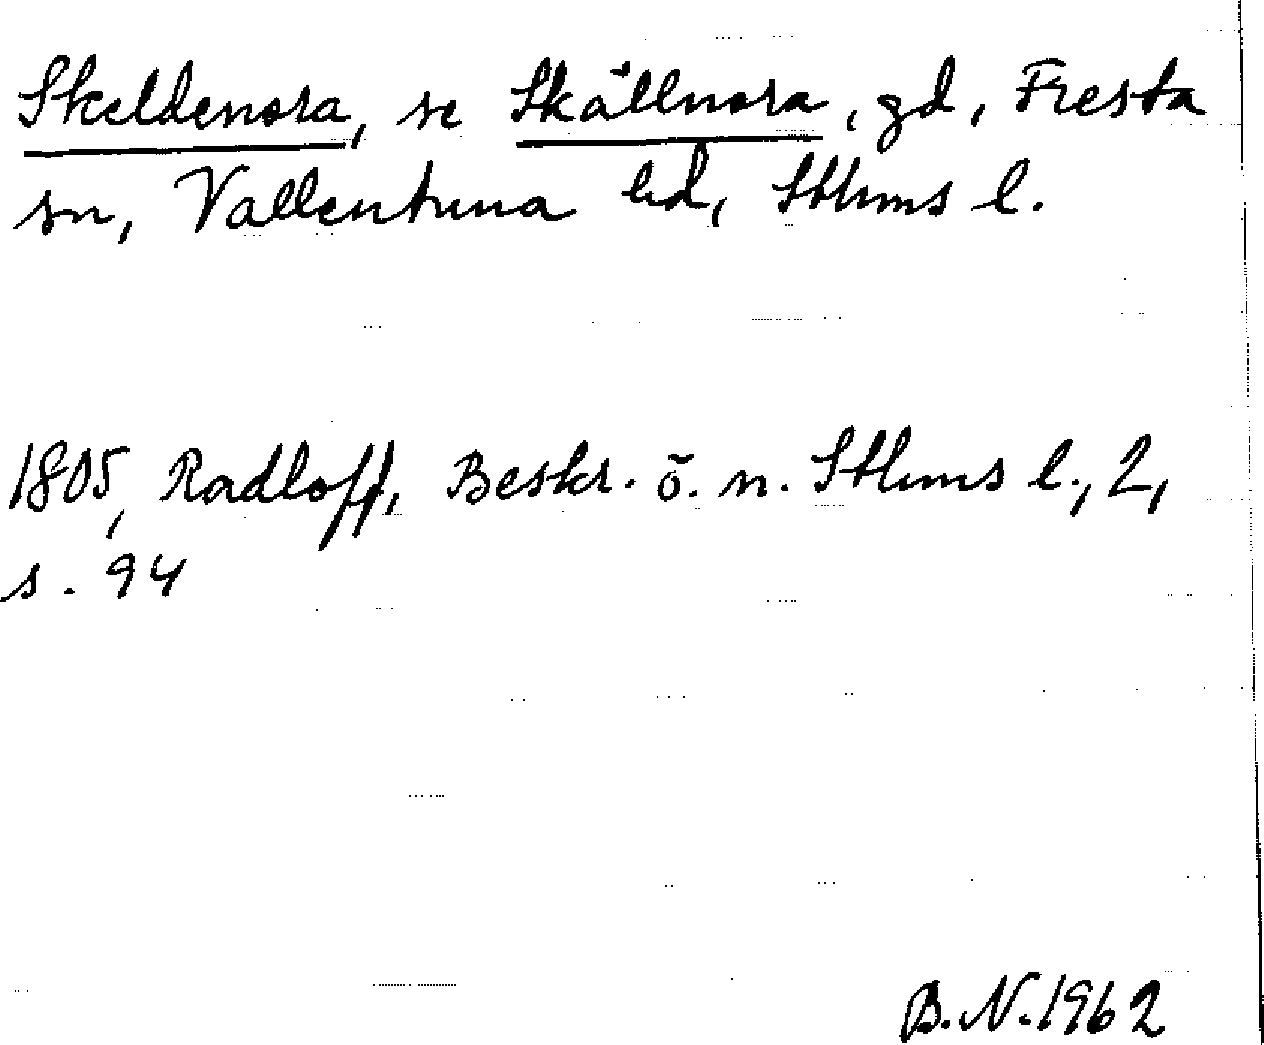 Skeldenora, se Skällnora, gd, Fresta
sn, Vallentuna hd, Sthms l.
1805, Radloff, Beskr. ö. n. Sthms l., 2,
s. 94
B.N. 1962